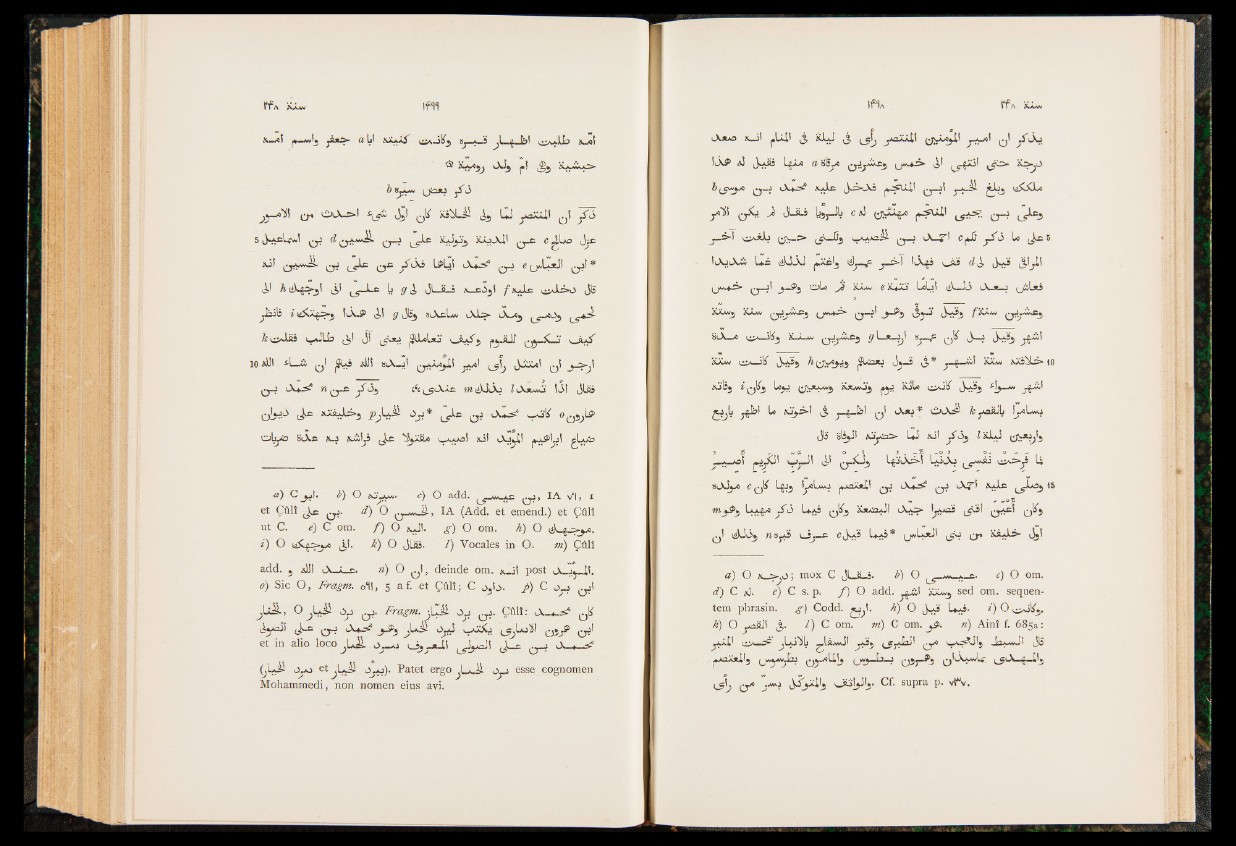 سنة ۲۴۸ ۱۴۹۸
يذكر ان امير المؤمنين المنتصر رأى فى ليلة فى المنام انه صعد
درجة حتى انتهى الى خمس وعشرين مرقاة a منها فقيل له هذا
ملكك وبلغ الخبر ابن المنجّم فدخل عليه محمّد بن موسى b
وعلىّ بن يحيى المنجّم مهنّئين له c بالرؤيا فقال لم يكن الامر
5 على ما ذكر لكم c احمد بن الخصيب ولكنّى حين بلغت آخر
المراقى قيل لى d قف فهذا آخر عمرك واغتمّ لذلك غمّا شديدا
فعاش بعد ذلك ايّاما تتمّة e سنة ثم مات وهو ابن خمس
وعشرين سنة f وقيل توفّى وهو ابن خمس وعشرين سنة وستّة
اشهر وقيل بل كان عمره اربعا g وعشرين سنة وكانت مدّة
10 خلافته ستّة اشهر * فى قول بعضهم ويومين h وقيل كانت ستّة
اشهر سواء وقيل كانت مائة يوم وتسعة وسبعين يوما وكان i وفاته
بسامرّا بالقصر k المحدث * بعد ان اظهر فى اخوته ما اظهر باربع
واربعين ليلة l وذكر انه لما حضرته الوفاة قال
فما فَرِحَتْ نَفْسِى بِدُنْيَا أَخَذْتُها ولٰكِنْ الى الرَّبِّ الكَرِيمِ أَصِيرُ
15 وصلّى عليه احمد بن محمّد بن المعتصم بسامرّا وبها كان c مولده
وكان أَعْيَنَ اقنى قصيرا جيّد البضعة وكان فيما ذكر مهيبا وهو m
اوّل خليفة من بنى العبّاس * فيما قيل c عرف قبره n وذلك ان
a) O درجة; mox C فقال. b) O عيسى. c) O om.
d) C له. e) C s. p. f) O add. وستة اشهر sed om. sequen-
tem phrasin. g) Codd. اربع. h) O فيما قيل. i) O وكانت.
k) O فى القصر. l) C om. m) C om. هو. n) Ainî f. 685a:
قال السبط والعجب من الطبرى وقبر السفاح بالانبار تحت المنبر
والمهدى بماسبذان وهرون بطوس والمامون بطرسوس والمعتصم
والواثق والمتوكّل بسرّ من رأى. Cf. supra p. ٧٣٧.
سنة ۲۴۸ ۱۴۹۹
امّه طلبت اظهار قبره وكانت كنيته ابا a جعفر واسم امّه
حبشية وهى امّ ولد روميّة ۞
ذكر بعض سيره b
ذكر ان المنتصر لما ولى الخلافة كان اوّل شىء احدث من الامور
5 عزل صالح c عن المدينة وتولية علىّ بن الحسين d بن اسماعيل
* ابن العبّاس e بن محمد ايّاها فذكر عن علىّ بن الحسين انه
قال دخلت عليه f اودّعه فقال لى g يا علىّ انى اوجّهك h الى
لحمى ودمى ومدّ جلد ساعده وقال g الى هذا وجّهتك i فانظر
كيف تكون للقوم وكيف تعاملهم يعنى آل ابى طالب فقلت k
10 ارجو ان امتثل رأى امير المؤمنين ايّده الله فيهم ان شاء الله
فقال اذًا تسعد l بذلك m عندى، وذكر عن n محمد بن
هارون o كاتب محمّد بن علىّ * برد الخيار p وخليفته على ديوان
ضياع ابراهيم المؤيّد انه اصيب مقتولا على فراشه به عدّة ضربات
a) C ابو. b) O سيرته. c) O add. بن عيسى, IA ٧٦, 1
et Çûlî بن على. d) O الحسن, IA (Add. et emend.) et Çûlî
ut C. e) C om. f) O اليه. g) O om. h) O موجهك.
i) O انى موجهك. k) O فقال. l) Vocales in O. m) Çûlî
add. عند الله و. n) O ان, deinde om. انه post المؤيّد.
o) Sic O, Fragm. ٥٦١, 5 a f. et Çûlî; C داود. p) C ابن برد
الخباز, O بن برد الخيار Fragm. بن برد الخبّاز. Çûlî: كان محمد
ابن هرون الاسارى يكتب لبرد الخيار وهو محمد بن على الصولى
et in alio loco محمد بن على الصولى المعروف ببرد الخيار
(برد الخيار et ببرد الخيار). Patet ergo برد الخيار esse cognomen
Mohammedi, non nomen eius avi.